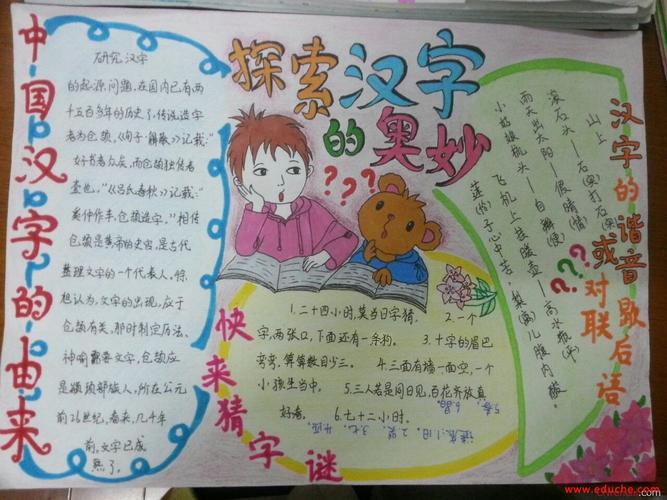 探索汉字
的奥妙
中国汉字的由来
研究汉字
的起源问题,在国内已有两
千五百多年的历史了,传说造字
者为仓颉,《句子·解蔽》记载:“
好书者众矣,而仓颉独传者
壹也,”《吕氏春秋》记载:“
奚仲作车,仓颉造字。”相传
仓颉是黄帝的史官,是古代
整理文字的一个代表人。
想认为,文字的出现,应于
仓颉有关,那时制定历法、
神喻需要文字,仓颉应
是颛顼部族人,所在公元
前26世纪,看来,几千年
前,文字已成
熟了。
???
快来猜字谜
1.二十四小时莫当日字猜. 2.一个
字,两张口,下面还有一条狗。 3.十字的眉巴
弯弯,算算数目少三。 4.三面有墙一面空,一个
小孩生当中。 5.三人若是同日见,百花齐放真
好看。 6.七十二小时。
汉字的谐音歇后语
或对联
???
山上
滚石头——石(实)打石(实)
雨天出太阳——假晴(情)
小奶娘梳头——自辫(便)
飞机上挂暖壶——高水瓶(平)
莲(怜)子心中苦,梨(离)儿腹内酸。
www.eduche.com